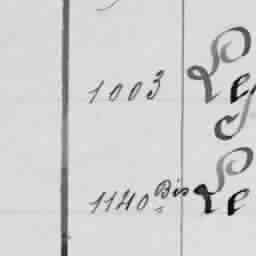 1003 Le
1140 Bis Le